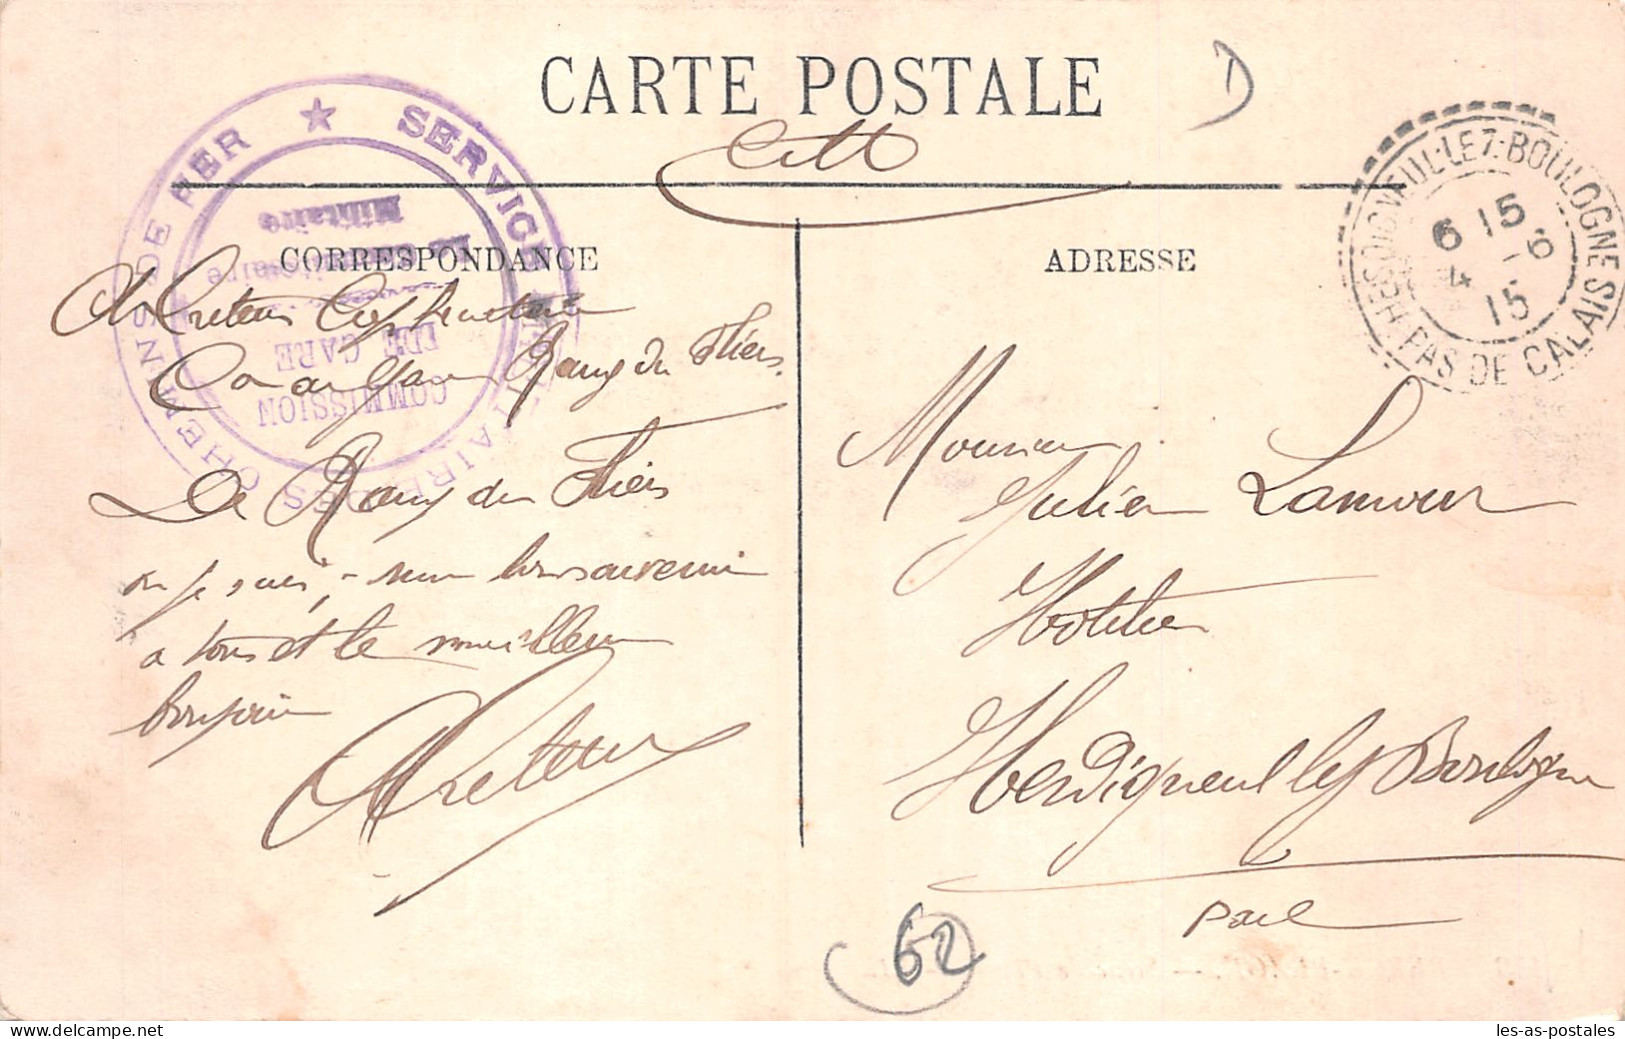 CARTE POSTALE
D
SERVICE MILITAIRE DES CHEMINS DE FER
Militaire
COMMISSION
DE GARE
HESDIGNEUL-LEZ-BOULOGNE
PAS DE CALAIS
6 15
4 - 6
15
CORRESPONDANCE
ADRESSE
Rang du Fliers
De Rang du Fliers
ou je suis, mon bon souvenir
a tous et le meilleur
bonjour
Monsieur
Julien Lamour
Hotelier
Hesdigneul les Boulogne
62
les-as-postales